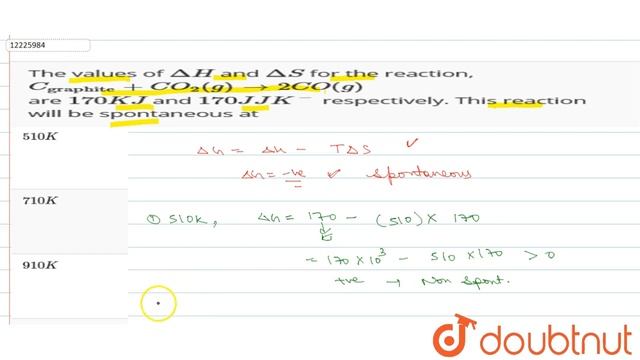 12225984
The values of ΔH and ΔS for the reaction,
C_graphite + CO₂(g) → 2CO(g)
are 170KJ and 170JJK⁻ respectively. This reaction
will be spontaneous at
510K
Δh = Δh - TΔS ✓
Δh = -ve ✓ Spontaneous
710K
① 510K, Δh = 170 - (510) × 170
kJ
= 170 × 10³ - 510 × 170 > 0
910K
+ve → Non Spont.
doubtnut